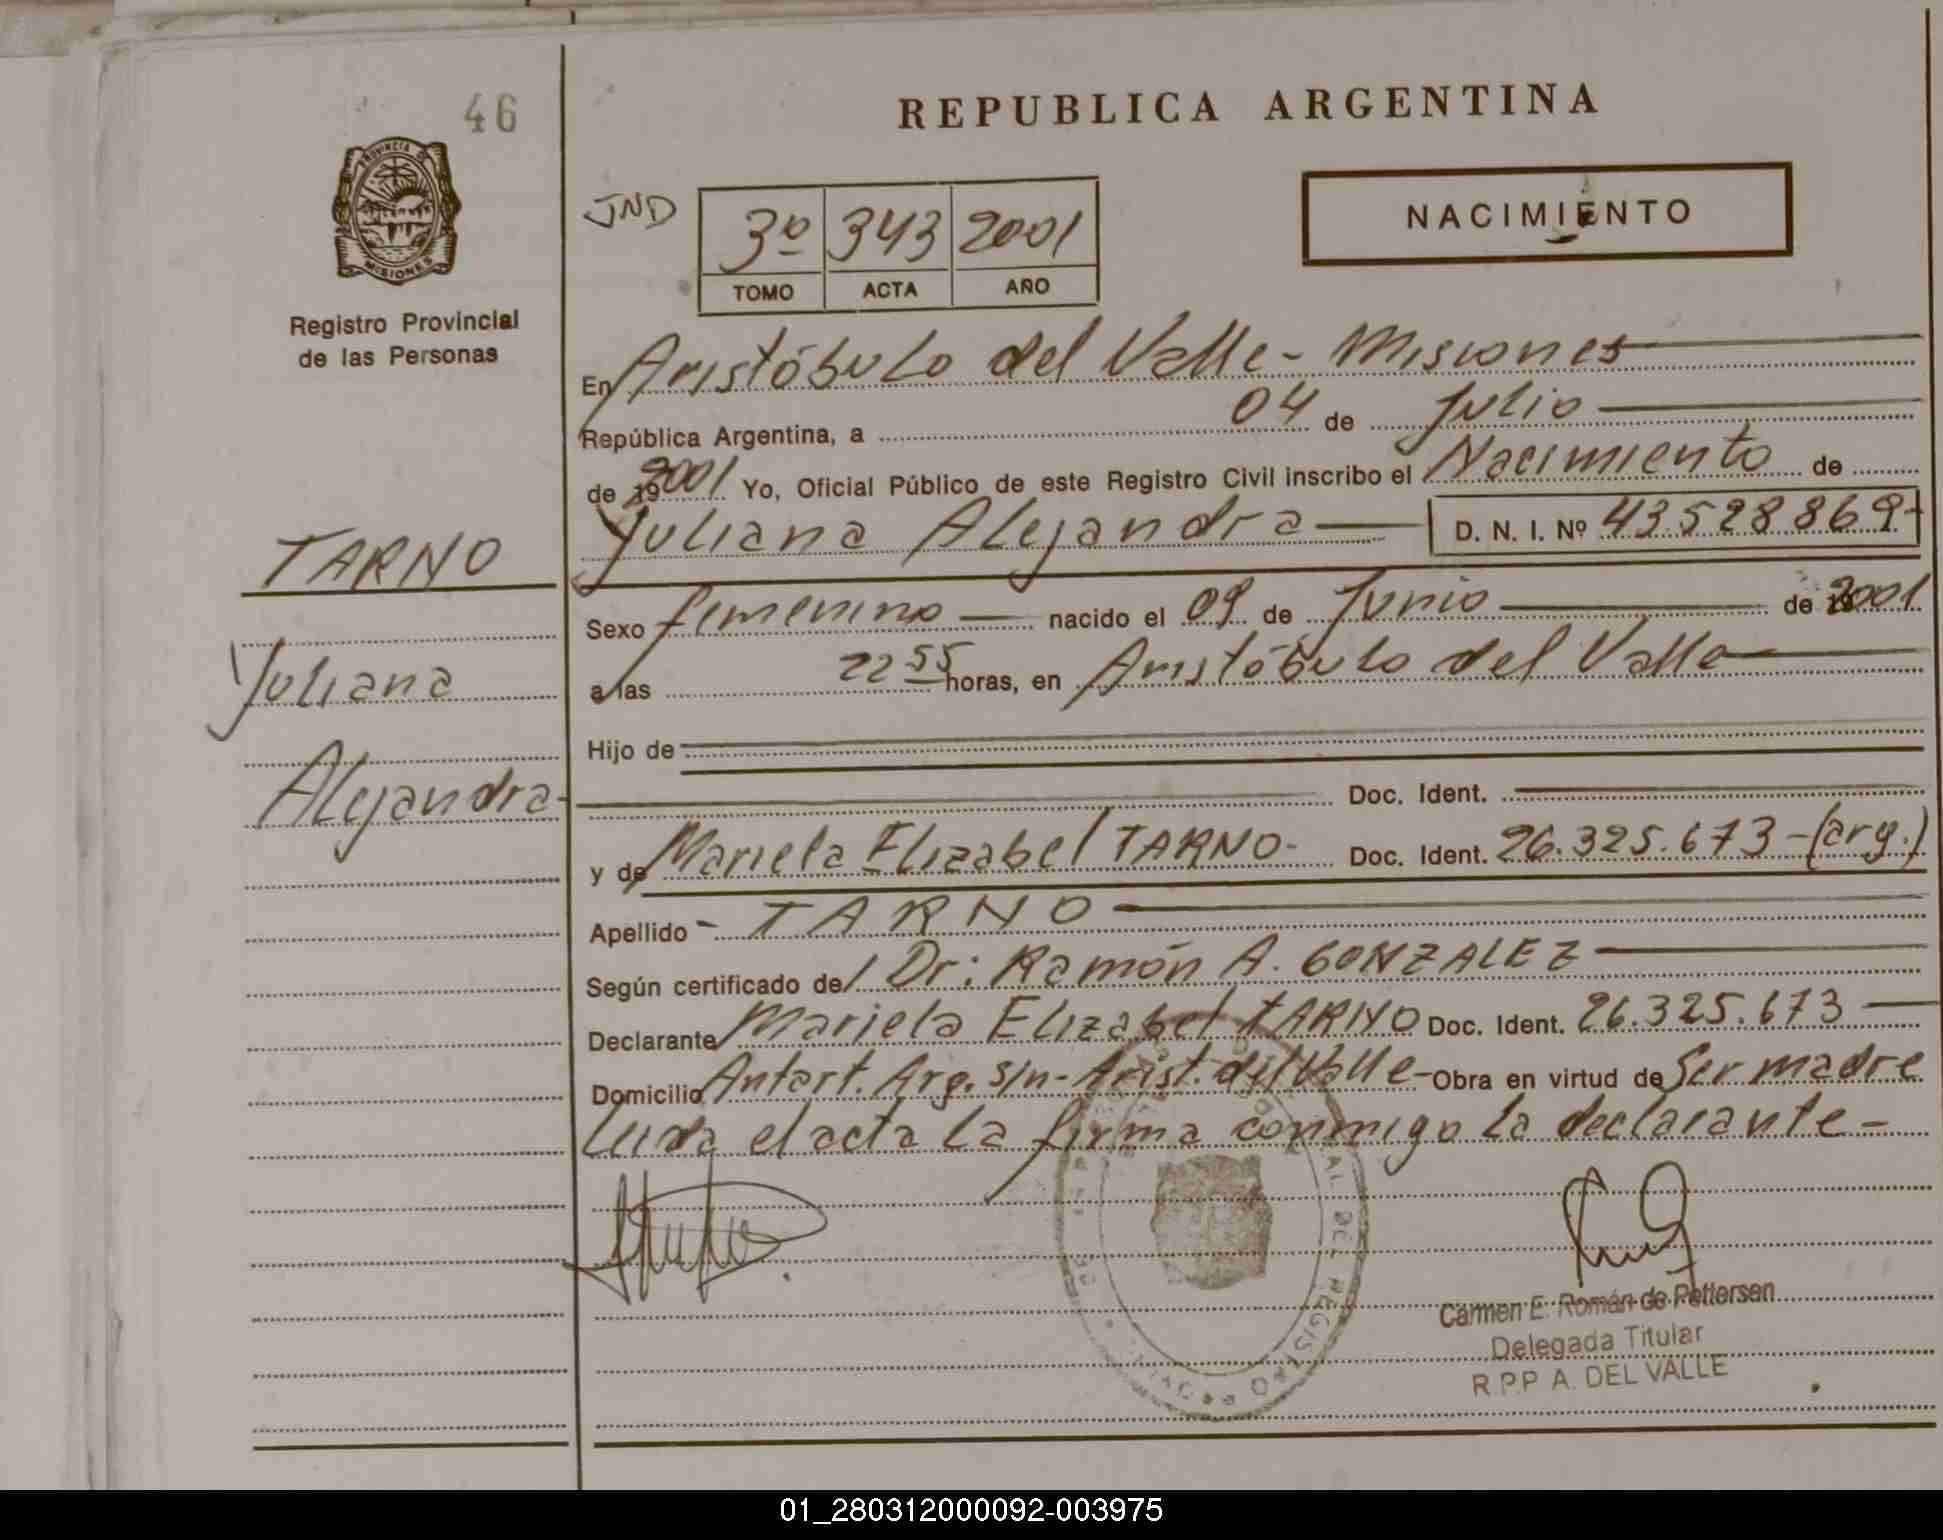 46
PROVINCIA DE
MISIONES
Registro Provincial
de las Personas
TARNO
Yuliana
Alejandra
REPUBLICA ARGENTINA
JND
3º 343 2001
TOMO ACTA AÑO
NACIMIENTO
En Aristóbulo del Valle - Misiones
República Argentina, a 04 de Julio
de 2001 Yo, Oficial Público de este Registro Civil inscribo el Nacimiento de
Yuliana Alejandra D. N. I. Nº 43.528.869-
Sexo femenino nacido el 09 de Junio de 2001
a las 22 55 horas, en Aristóbulo del Valle
Hijo de
Doc. Ident.
y de Mariela Elizabel TARNO- Doc. Ident. 26.325.673-(arg.)
Apellido - TARNO
Según certificado de/ Dr: Ramón A. GONZALEZ
Declarante Mariela Elizabel TARNO Doc. Ident. 26.325.673
Domicilio Antart. Arg. s/n- Arist. del Valle- Obra en virtud de Ser madre
Leida el acta la firma conmigo la declarante -
AL DEL REGISTRO
Carmen E. Román de Pettersen
Delegada Titular
R.P.P A. DEL VALLE
01_280312000092-003975